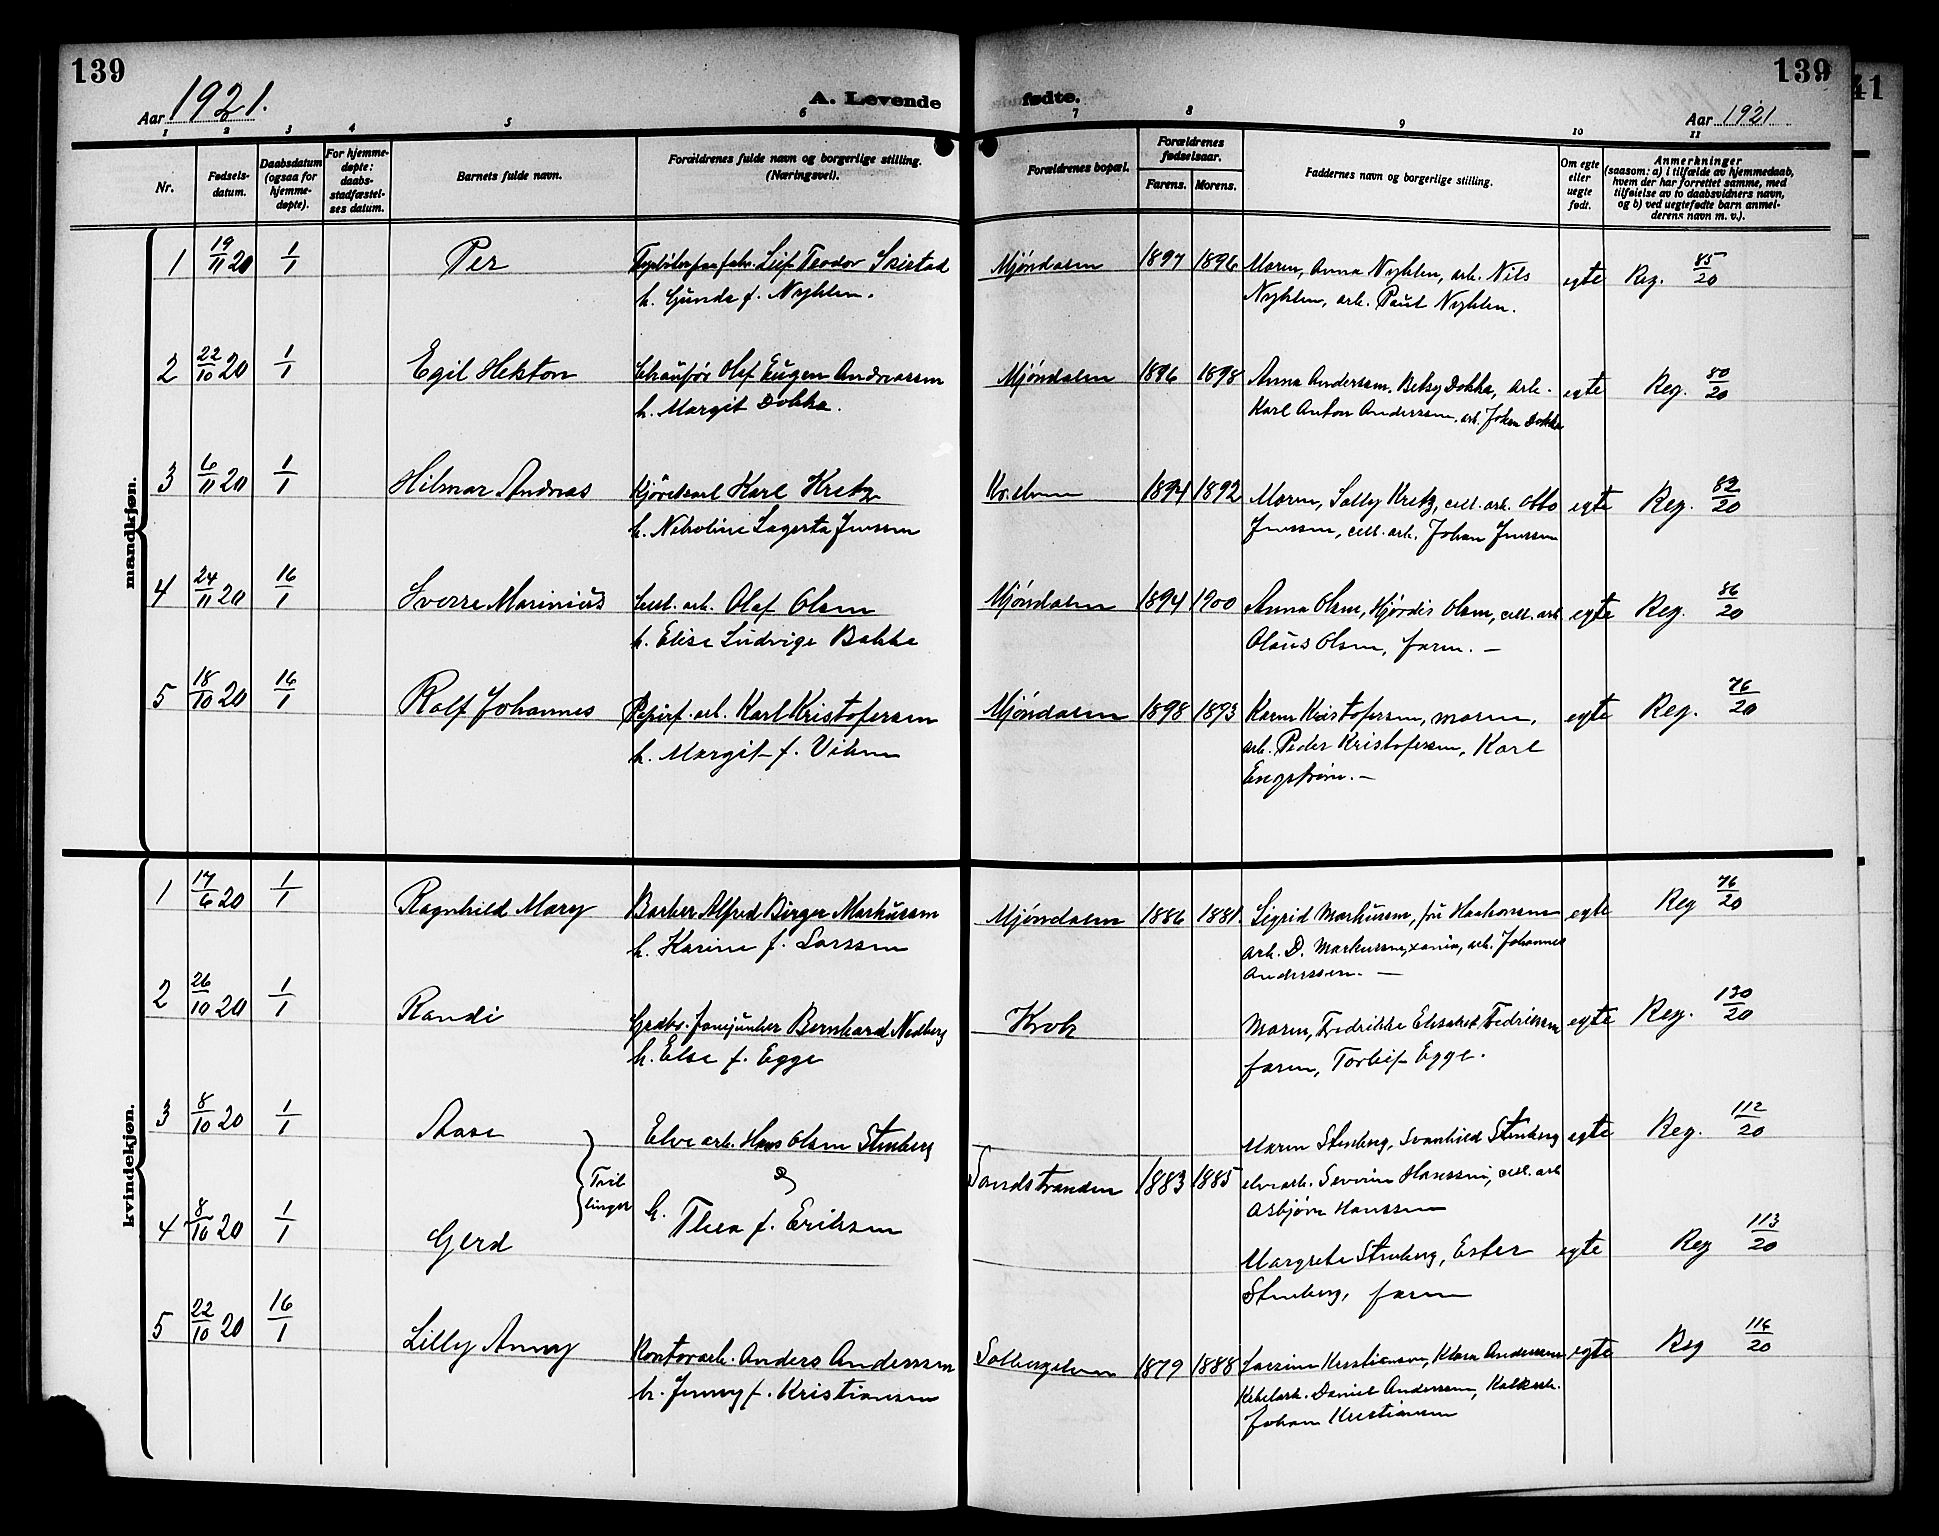 139
139
41
Aar 1921.
A. Levende
fødte.
Aar 1921
1 2 3 4 5 6
7 8 9 10 11
Nr.
Fødsels-
datum.
Daabsdatum
(ogsaa for
hjemme-
døpte).
For hjemme-
døpte:
daabs-
stadfæstel-
ses datum.
Barnets fulde navn.
Forældrenes fulde navn og borgerlige stilling.
(Næringsvei).
Forældrenes bopæl.
Forældrenes
fødselsaar.
Farens. Morens.
Faddernes navn og borgerlige stilling.
Om egte
eller
uegte
født.
Anmerkninger
(saasom: a) i tilfælde av hjemmedaab,
hvem der har forrettet samme, med
tilføielse av to daabsvidners navn,
og b) ved uegtefødte barn anmel-
derens navn m. v.).
mandkjøn.
1 19/11 20 1/1 Per Leif Teodor Skistad Mjøndalen 1897 1896 Moren, Anna Nyhlen, arb. Nils egte Reg. 85/20
h. Gunda f. Nyhlen. Nyhlen, arb. Paul Nyhlen.
2 22/10 20 1/1 Egil Hekton Chauffør Olef Eugen Andreassen Mjøndalen 1896 1898 Anna Andersen, Betsy Dokka, arb. egte Reg. 80/20
h. Margit Dokka. Karl Anton Anderssen, arb. Johan Dokka
3 6/11 20 1/1 Hilmar Andreas Kjørekarl Karl Kretz 1894 1892 Moren, Solly Kretz, cell. arb. Otto egte Reg. 82/20
h. Nikoline Lagerta Jenssen Jenssen, cell. arb. Johan Jenssen
4 24/11 20 16/1 Sverre Marinius Cell. arb. Olaf Olsen Mjøndalen 1894 1900 Anna Olsen, Hjørdis Olsen, cell. arb. egte Reg. 86/20
h. Elise Ludvige Bakke Olaus Olsen, faren. —
5 18/10 20 16/1 Rolf Johannes Papirf. arb. Karl Kristofersen Mjøndalen 1898 1893 Karen Kristofersen, moren, egte Reg. 76/20
h. Margit f. Viken arb. Peder Kristofersen, Karl
Engstrøm. —
kvindekjøn.
1 17/6 20 1/1 Ragnhild Mary Barber Alfred Birger Markussen Mjøndalen 1886 1881 Sigrid Markussen, fru Haakonsen egte Reg 76/20
h. Karine f. Larssen arb. D. Markussen, xania, arb. Johannes
Anderssen. —
2 26/10 20 1/1 Randi Bernhard Nedberg Krok Moren, Fredrikke Elisabet Fredriksen egte Reg. 130/20
h. Else f. Egge faren, Torleif Egge.
3 8/10 20 1/1 Aase Elvearb. Hans Olsen Stenberg Maren Stenberg, Svanhild Stenberg egte Reg. 112/20
Tvil
linger
& Sandstranden 1883 1885 elvearb. Severin Hanssen, cell. arb
Asbjørn Hanssen
4 8/10 20 1/1 Gerd h. Thea f. Eriksen Margrete Stenberg, Ester egte Reg 113/20
Stenberg, faren
5 22/10 20 16/1 Lilly Anny Kontorarb. Anders Anderssen Solbergelven 1879 1888 Kristiansen, Klara Anderssen egte Reg 116/20
h. Jenny f. Kristiansen Daniel Anderssen, Kalkarb.
Johan Kristiansen